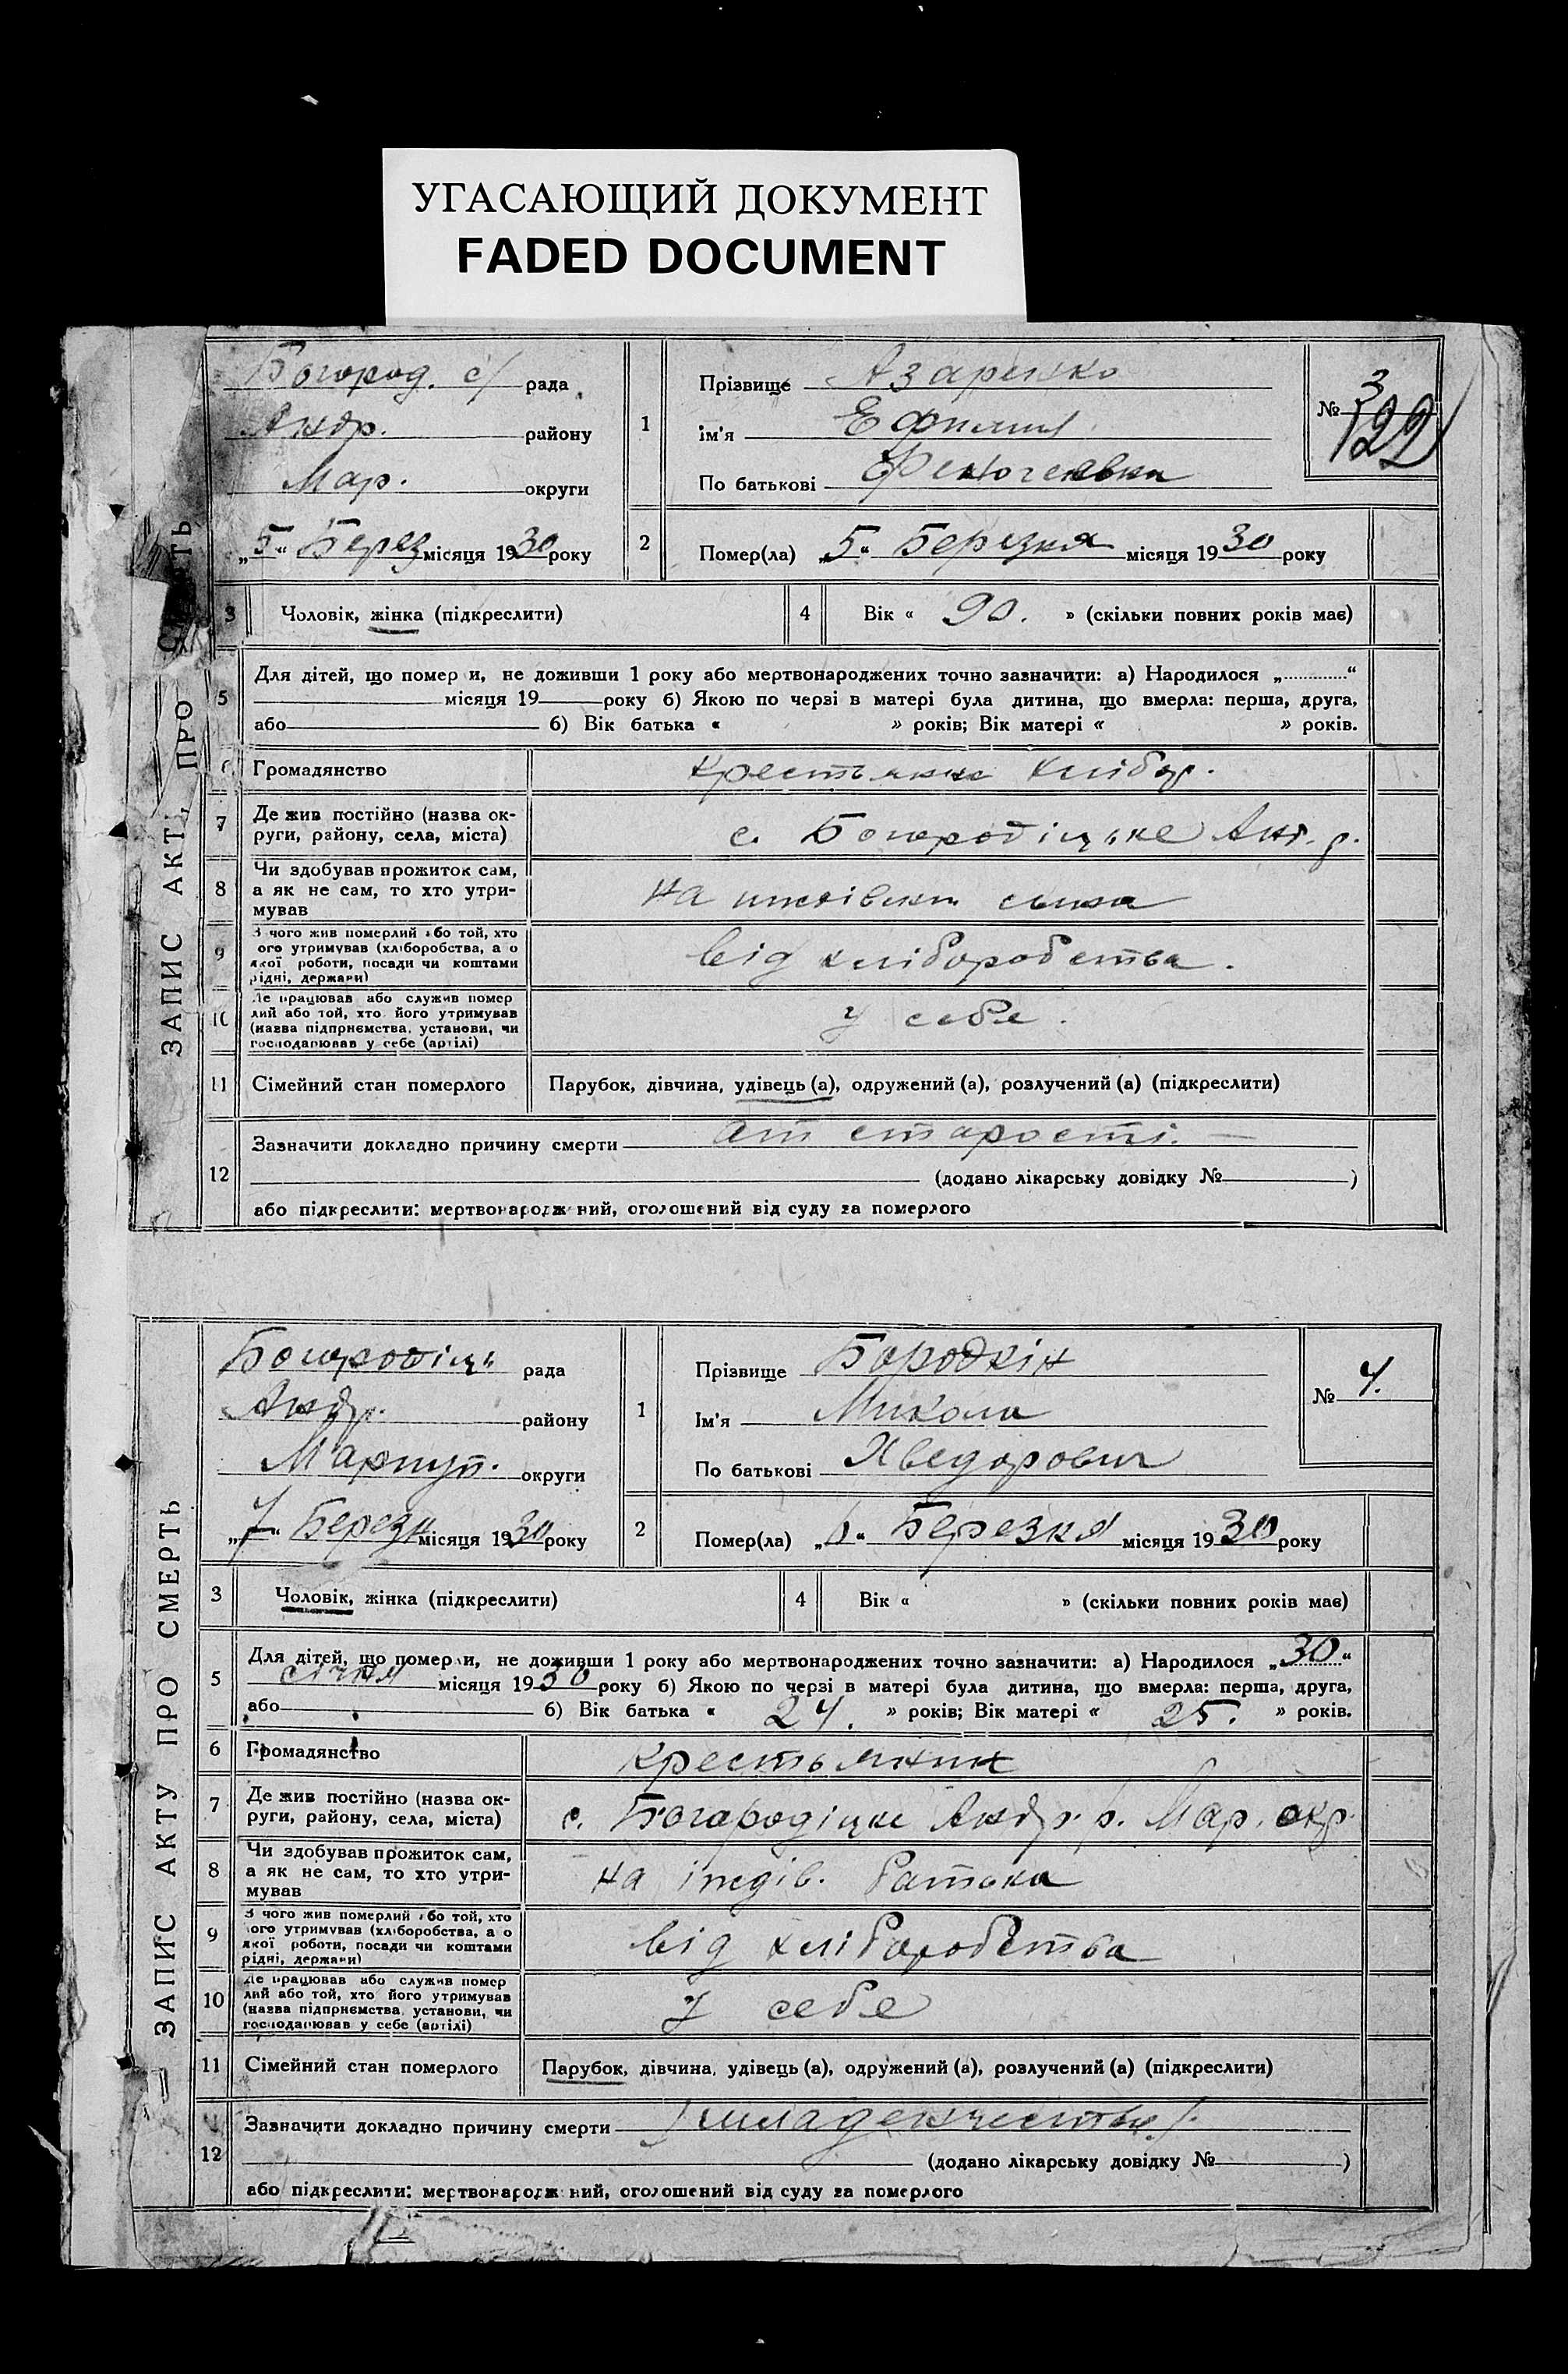 УГАСАЮЩИЙ ДОКУМЕНТ
FADED DOCUMENT
ЗАПИС АКТУ ПРО СМЕРТЬ
Богород. с/ рада
Андр. району
Мар. округи
„5“ Берез місяця 1930 року
1
Прізвище Азаренко
ім'я
По батькові
№ 3
122
2
Помер(ла) „5“ Березня місяця 1930 року
3 Чоловік, жінка (підкреслити)
4 Вік « 90. » (скільки повних років має)
5 Для дітей, що помер и, не доживши 1 року або мертвонароджених точно зазначити: а) Народилося „ “
місяця 19 року б) Якою по черзі в матері була дитина, що вмерла: перша, друга,
або б) Вік батька « » років; Вік матері « » років.
6 Громадянство крестьянка хлібор.
7 Де жив постійно (назва ок-
руги, району, села, міста) с. Богородіцьке Анд. р.
8 Чи здобував прожиток сам,
а як не сам, то хто утри-
мував
на сина
9 З чого жив померлий або той, хто
ого утримував (хліборобства, а о
якої роботи, посади чи коштами
рідні, держави)
від хліборобства.
10 Де працював або служив помер
лий або той, хто його утримував
(назва підприємства, установи, чи
господарював у себе (артілі)
У себе.
11 Сімейний стан померлого Парубок, дівчина, удівець (а), одружений (а), розлучений (а) (підкреслити)
12 Зазначити докладно причину смерти от старості. —
(додано лікарську довідку № )
або підкреслити: мертвонародж ний, оголошений від суду за померлого
ЗАПИС АКТУ ПРО СМЕРТЬ
Богородіць рада
Андр. району
Маріуп. округи
„7“ Березн місяця 1930 року
1
Прізвище Бородкін
Ім'я Микола
По батькові Хведорович
№ 4.
2
Помер(ла) „6“ Березня місяця 1930 року
3 Чоловік, жінка (підкреслити)
4 Вік « » (скільки повних років має)
5 Для дітей, що помер и, не доживши 1 року або мертвонароджених точно зазначити: а) Народилося „30“
січня місяця 1930 року б) Якою по черзі в матері була дитина, що вмерла: перша, друга,
або б) Вік батька « 24. » років; Вік матері « 25. » років.
6 Громадянство крестьянин
7 Де жив постійно (назва ок-
руги, району, села, міста) с. Богородіцке Андр. р. Мар. окр.
8 Чи здобував прожиток сам,
а як не сам, то хто утри-
мував
на іждів. батька
9 З чого жив померлий або той, хто
ого утримував (хліборобства, а о
якої роботи, посади чи коштами
рідні, держави)
від хліборобства
10 Де працював або служив помер
лий або той, хто його утримував
(назва підприємства, установи, чи
господарював у себе (артілі)
У себе
11 Сімейний стан померлого Парубок, дівчина, удівець (а), одружений (а), розлучений (а) (підкреслити)
12 Зазначити докладно причину смерти
(додано лікарську довідку № )
або підкреслити: мертвонародж ний, оголошений від суду за померлого